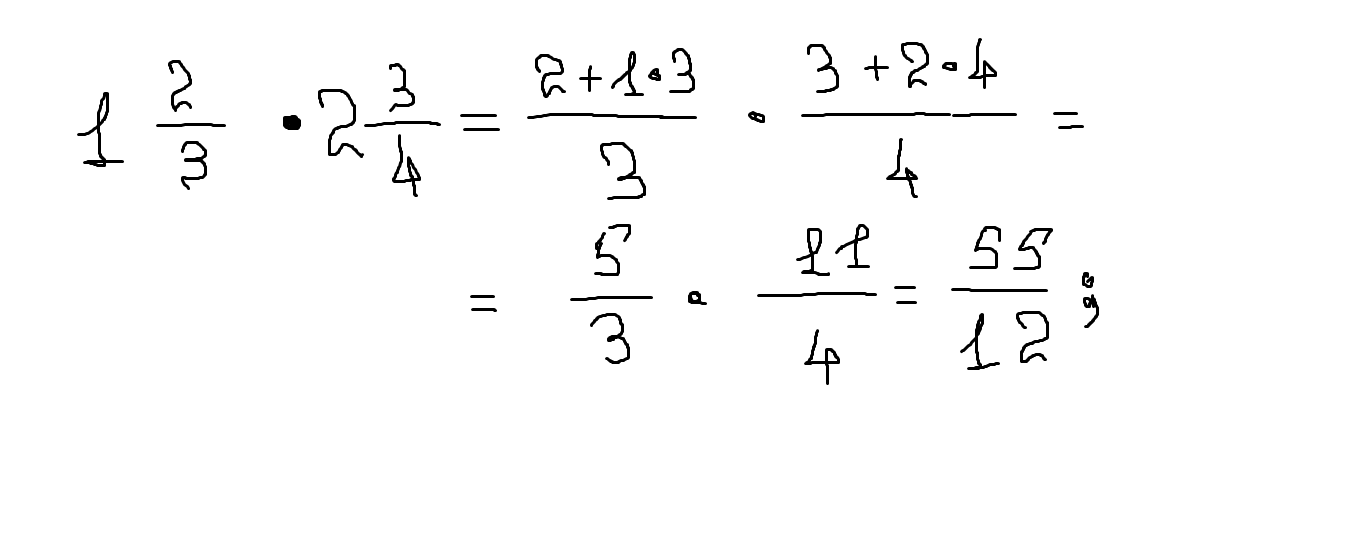 1 2/3 • 2 3/4 = (2+1•3)/3 • (3+2•4)/4 =
= 5/3 • 11/4 = 55/12 ;